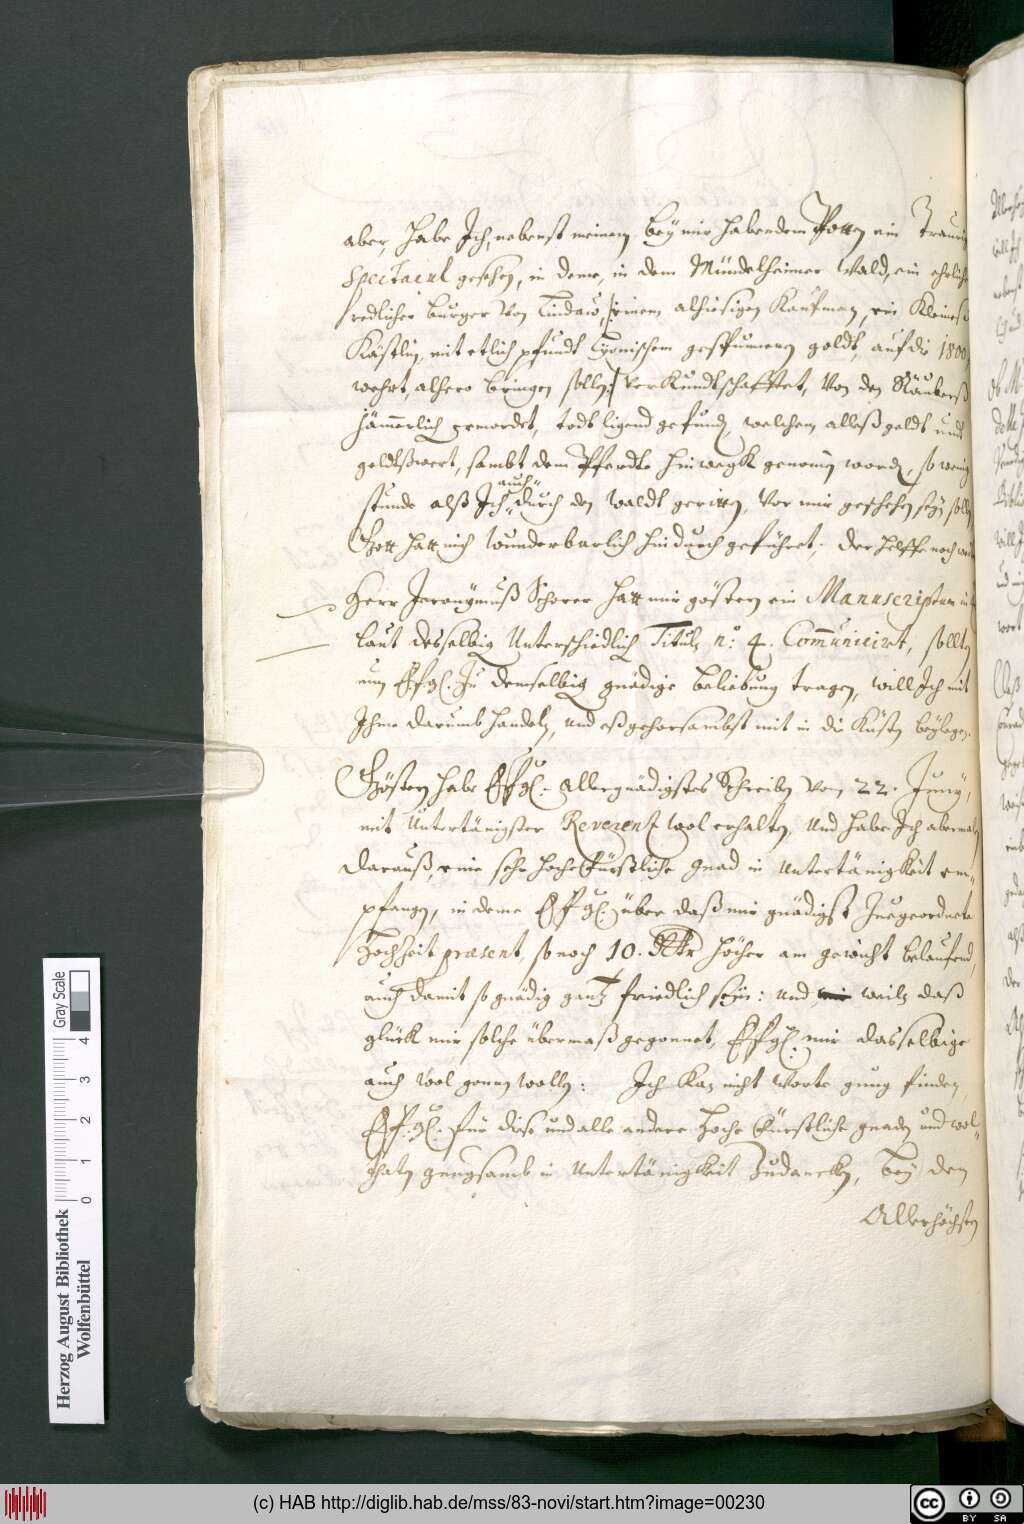 aber, habe Ich, nebenst meinem bey mir habendem Potten ein Traurig
Spectacul gesehen, in deme, in dem Mündelheimer Wald, ein ehrlicher
redlicher burger von Lindaw, /: einem alhiesigen Kaufman, ein Kleines
Kästlin, mit etlich pfundt Lyonischem gespunnenen goldt, auf die 1800
wehrt, alhero bringen sollen :/ verkundtschafftet, Von den Räubern
jämmerlich ermordet, todt ligend gefunden, welchem alles geldt und
geldtswert, sambt dem Pferdte hinwegk genomen worden, so wenig
stunde alß Ich auch durch den waldt geritten, Vor mir geschehen sein solle
Gott hatt mich wunderbarlich hindurch geführet, der helffe noch
Herr Jeronÿmuß Schorer hatt mir gösteren ein Manuscriptum
laut desselbigen Unterschiedlichen Tituls n:º 4. Comunicirt, sollten
nun EFG. Zu demselbigen gnädige beliebung tragen, will Ich mit
Ihme darumb handelen, und es gehorsambst mit in die Küsten beylegen.
Gösteren habe EFG: Allergnädigstes Schreiben vom 22. Juny,
mit Untertänigster Reverentz wol erhalten, Und habe Ich abermalen
darauß, eine sehr hochfürstliche gnad in Untertänigkeit em-
pfangen, in deme EFG. über daß mir gnädigst Zuegeordnete
Hochzeit praesent, so noch 10. höcher am gewicht belaufend,
auch damit so gnädig gantz friedlich sein: und weilen daß
glück mir solche übermaß gegonnet, EFG: mir dasselbige
auch wol gonnen wollen: Ich Kan nicht worte gnug finden,
EFG. für diese und alle andere Hoche fürstliche gnaden und wol-
thaten gnugsamb in Untertänigkeit Zudancken, bey den
Allerhöchsten
Herzog August Bibliothek
Wolfenbüttel
0 1 2 3 4
Gray Scale
(c) HAB http://diglib.hab.de/mss/83-novi/start.htm?image=00230
cc BY SA